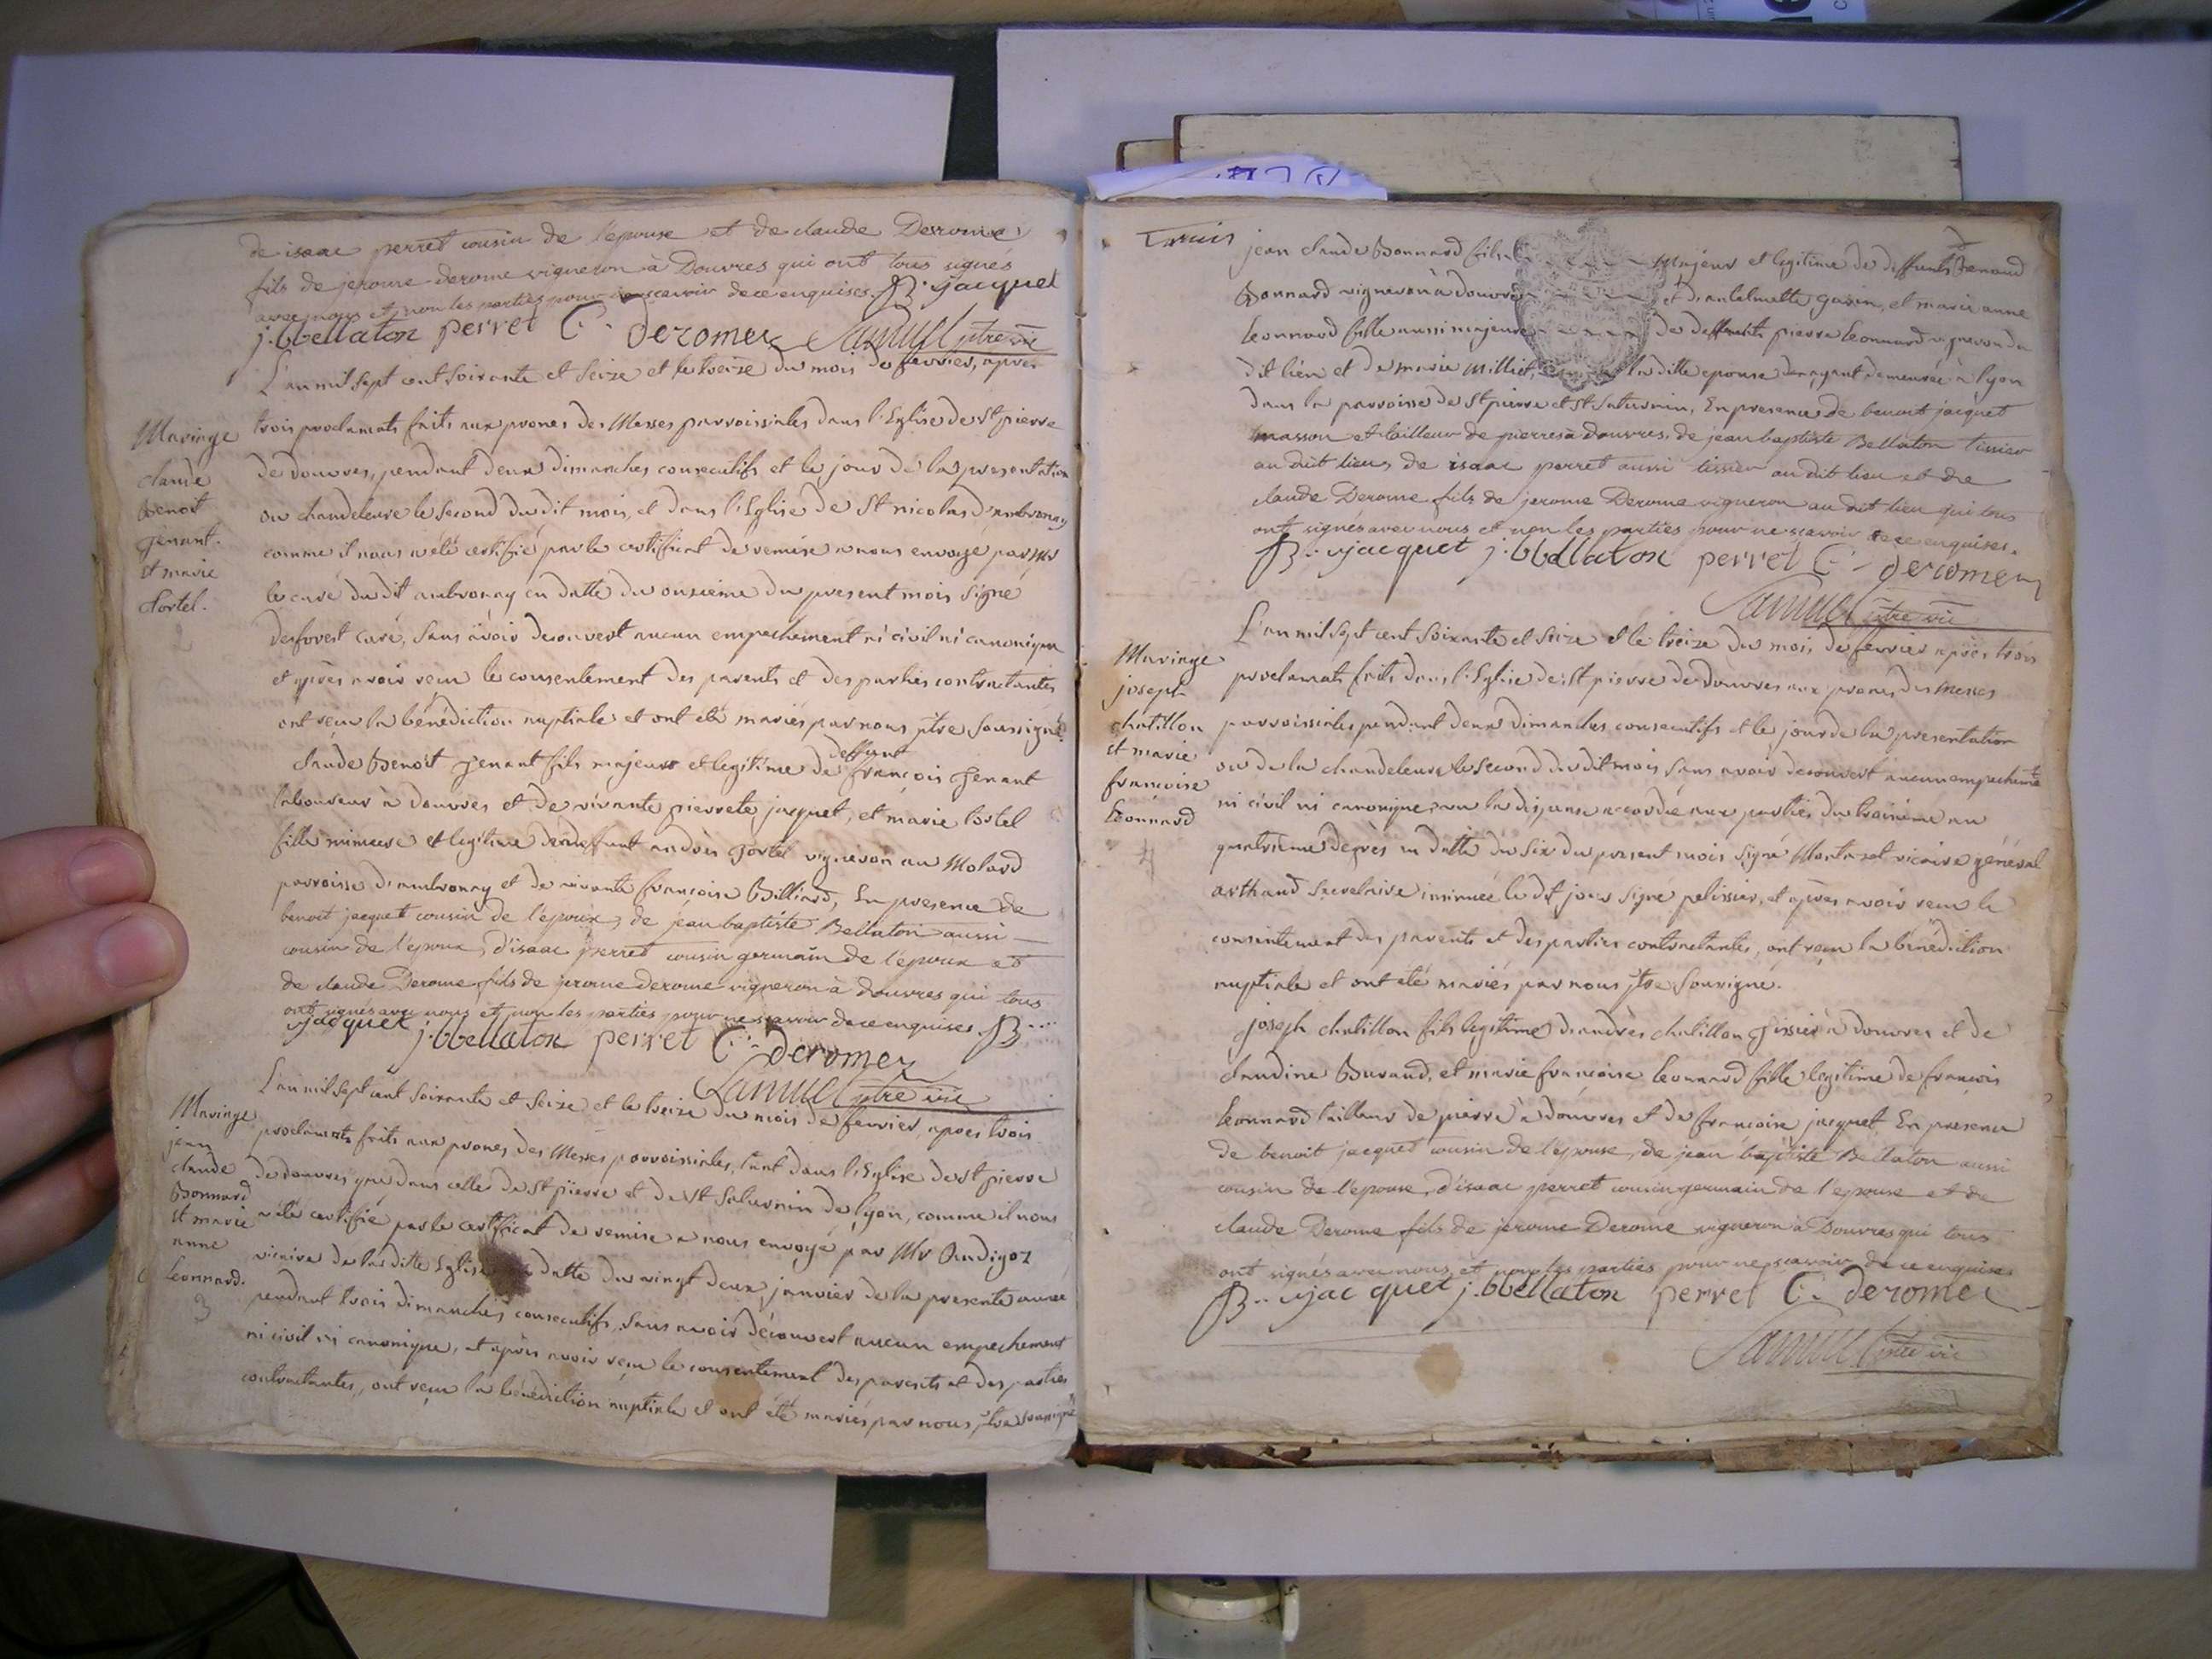 de isaac perret cousin de l'epouse et de claude Derome
fils de jerome derome vigneron à Douvres qui ont tous signés
avec nous et non les parties pour ne scavoir de ce enquises. B. jacquet
j. bbellaton perret C. deromer Samuel ptre vic
L'an mil sept cent soixante et seize et le treize du mois de fevrier, apres
Mariage
claude
Benoit
Jenant.
et marie
Cortel.
2
trois proclamats faits aux prones des Messes parroissiales dans l'Eglise de St pierre
de douvres, pendant deux dimanches consecutifs et le jour de la presentation
ou chandeleure le second du dit mois, et dans l'Eglise de St nicolas d'ambronay
comme il nous a été certifié par le certificat de remise a nous envoyé par Mr
le curé du dit ambronay en datte du onzieme du present mois signé
desforest curé, sans avoir decouvert aucun empechement ni civil ni canonique
et après avoir reçu le consentement des parents et des parties contractantes
ont reçu la bénédiction nuptiale et ont été mariés par nous ptre soussigné
claude Benoit Jenant fils majeur et legitime de deffunt françois Jenant
laboureur à douvres et de vivante pierrete jacquet, et marie Cortel
fille mineure et legitime de deffunt andrés Cortel vigneron au Molard
parroisse d'ambronay et de vivante françoise Billiard, En presence de
benoit jacquet cousin de l'epoux, de jean baptiste Bellaton aussi
cousin de l'epoux, d'isaac perret cousin germain de l'epoux et
de claude Derome fils de jerome derome vigneron à douvres qui tous
ont signés avec nous et non les parties pour ne scavoir de ce enquises. B...
jacquet j. bbellaton perret C. deromer
Samuel ptre vic
L'an mil sept cent soixante et seize et le treize du mois de fevrier, apres trois
Mariage
jean
claude
Bonnard
et marie
anne
Leonnard.
3
proclamats faits aux prones des Messes parroissiales, tant dans l'Eglise de St pierre
de douvres que dans celle de St pierre et de St Saturnin de lyon, comme il nous
a été certifié par le certificat de remise a nous envoyé par Mr Andigoz
vicaire de la ditte Eglise datte du vingt deux janvier de la presente année
pendant trois dimanches consecutifs, sans avoir découvert aucun empechement
ni civil ni canonique, et après avoir reçu le consentement des parents et des parties
contractantes, ont reçu la bénédiction nuptiale et ont été mariés par nous ptre soussigné
Trois
jean claude Bonnard fils majeur et legitime de deffunts
Bonnard vigneron à douvres et d'antelmette gavin, et marie anne
Leonnard fille aussi majeure de deffunts pierre Leonnard vigneron du
dit lieu et de marie Milliet, la ditte epouse demeurée à lyon
dans la parroisse de St pierre et St Saturnin, En presence de benoit jacquet
masson et tailleur de pierres à douvres, de jean baptiste Bellaton tissier
au dit lieu, de isaac perret aussi tissier au dit lieu et de
claude Derome fils de jerome Derome vigneron au dit lieu qui tous
ont signés avec nous et non les parties pour ne scavoir de ce enquises.
B.. jacquet j. bbellaton perret C. deromer
Samuel ptre vic
L'an mil sept cent soixante et seize et le treize du mois de fevrier après trois
Mariage
joseph
chatillon
et marie
françoise
Leonnard
4
proclamats faits dans l'Eglise de St pierre de douvres aux prones des messes
parroissiales pendant deux dimanches consecutifs et le jour de la presentation
ou de la chandeleure le second du dit mois, sans avoir decouvert aucun empechemt
ni civil ni canonique, vu la dispense accordée aux parties du troisieme au
quatrieme degrès en datte du six du present mois signé Montazet vicaire général
arthaud secretaire insinuée le dit jour signé pelissier, et après avoir reçu le
consentement des parents et des parties contractantes, ont reçu la bénédiction
nuptiale et ont été mariés par nous ptre soussigné.
joseph chatillon fils legitime d'andrés chatillon tissier à douvres et de
claudine Buvand, et marie françoise Leonnard fille legitime de françois
Leonnard tailleur de pierre à douvres et de françoise jacquet En presence
de benoit jacquet cousin de l'epouse, de jean baptiste Bellaton aussi
cousin de l'epouse, d'isaac perret cousin germain de l'epouse et de
claude Derome fils de jerome Derome vigneron à Douvres qui tous
ont signés avec nous et non les parties pour ne scavoir de ce enquises
B.. jacquet j. bbellaton perret C. deromer
Samuel ptre vic